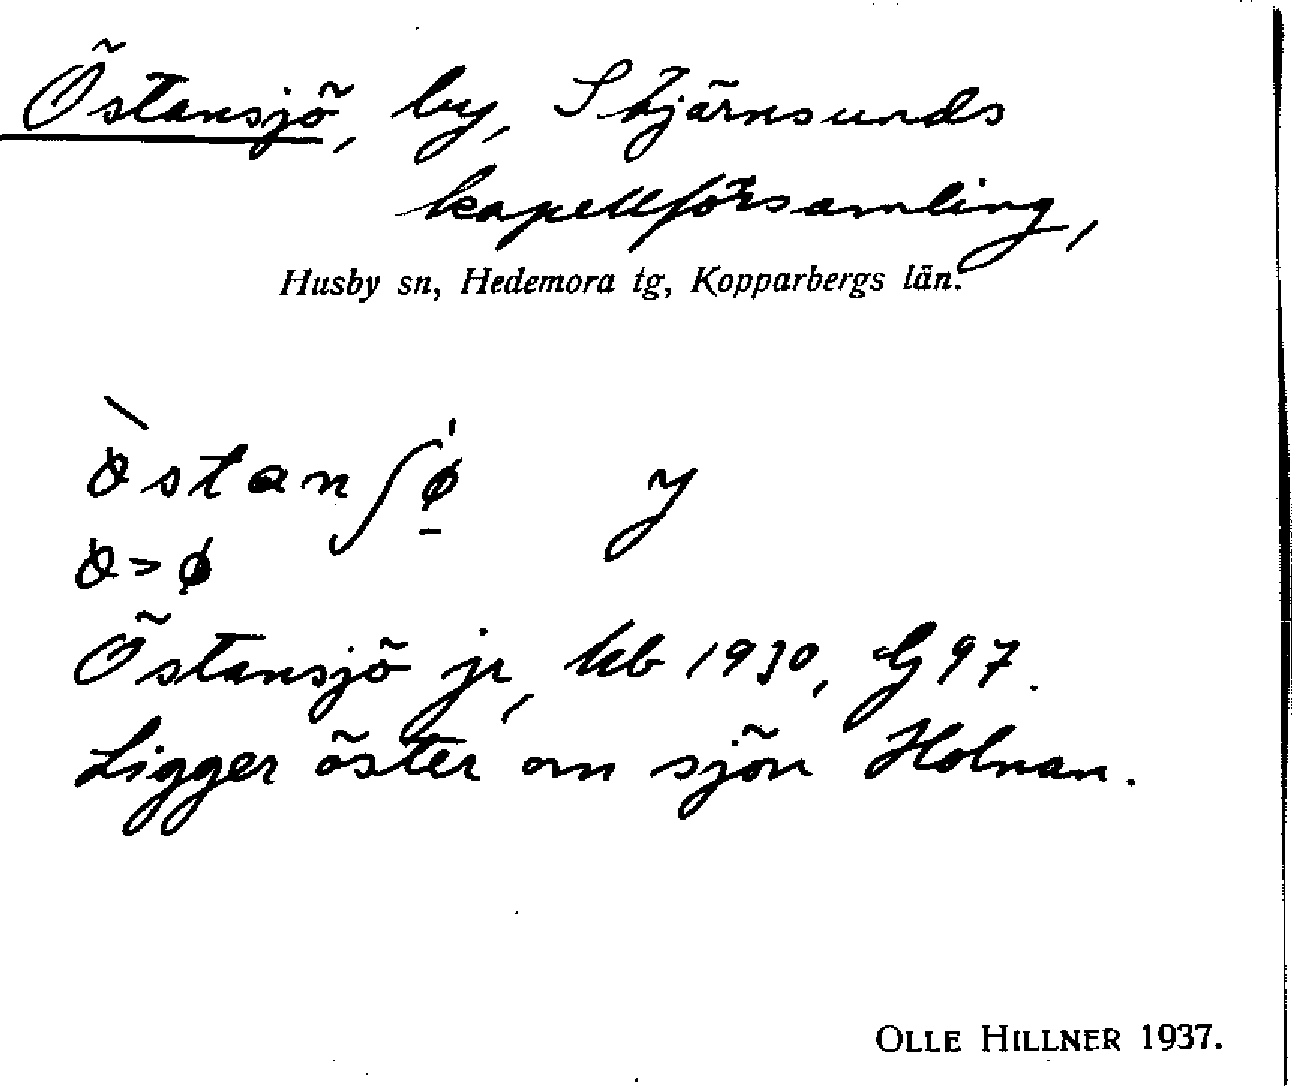 Östansjö, by, Stjärnsunds
kapellförsamling,
Husby sn, Hedemora tg, Kopparbergs län.
y
Östansjö jr, kb 1930, G 97.
Ligger öster om sjön Holnan.
OLLE HILLNER 1937.